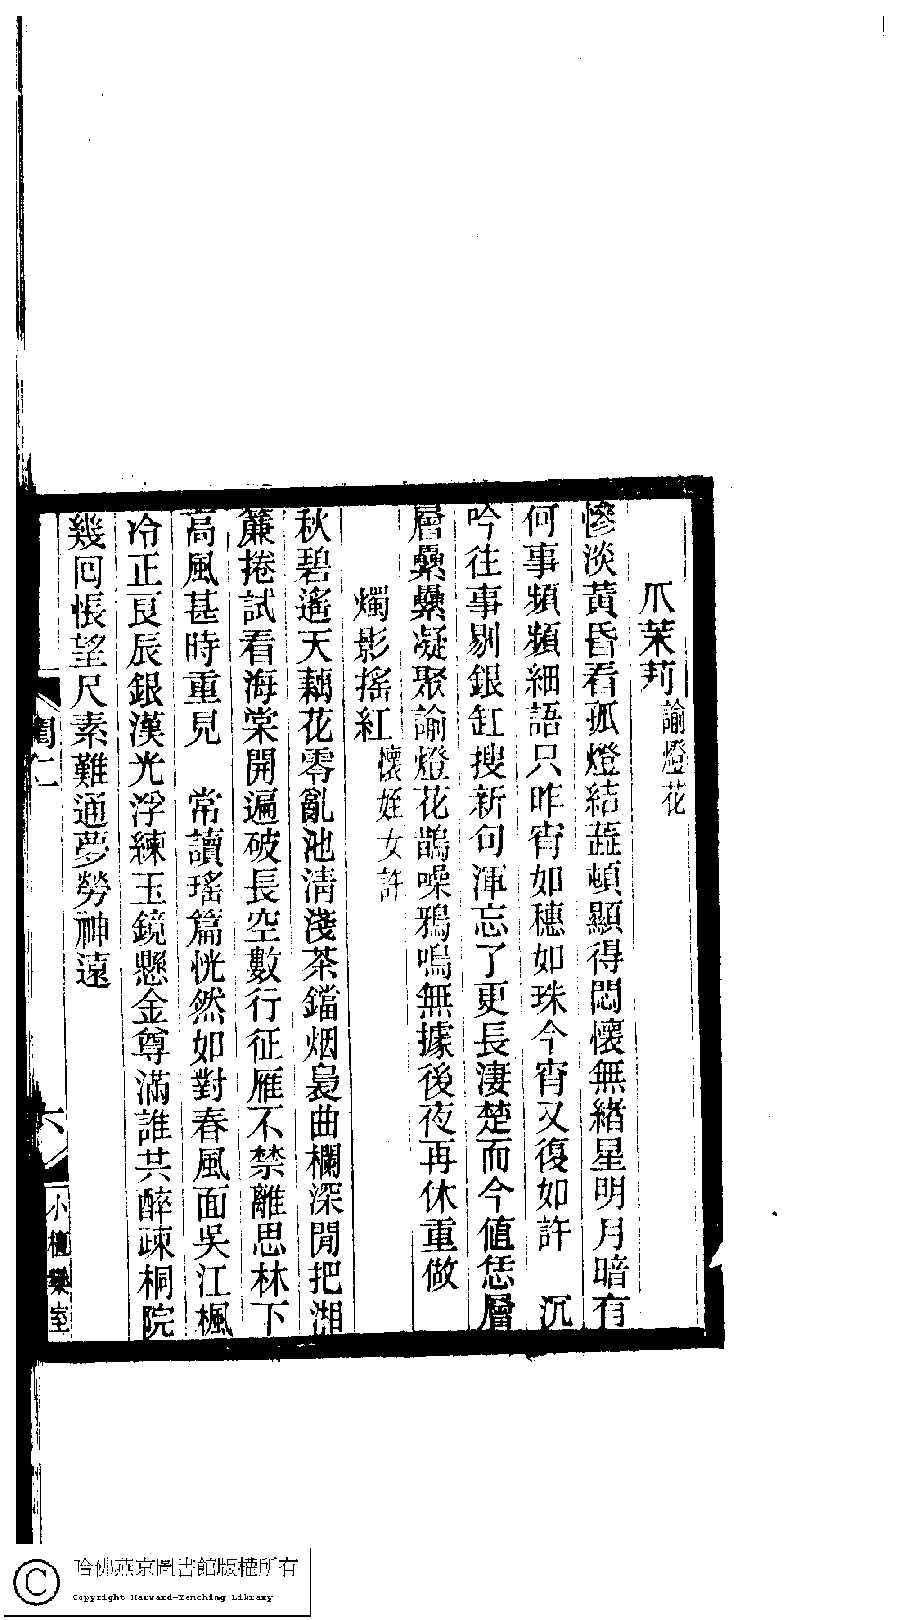 爪茉莉 諭燈花
慘淡黃昏看孤燈結蕊頓顯得悶懷無緖星明月暗有
何事頻頻細語只昨宵如穗如珠今宵又復如許　沉
吟往事剔銀缸搜新句渾忘了更長淒楚而今値恁層
層纍纍凝聚諭燈花鵲噪鴉鳴無據後夜再休重做
燭影搖紅 懷姪女許
秋碧遙天藕花零亂池淸淺茶鐺烟裊曲欄深閒把湘
簾捲試看海棠開遍破長空數行征雁不禁離思林下
高風甚時重見　常讀瑤篇恍然如對春風面吳江楓
冷正良辰銀漢光浮練玉鏡懸金尊滿誰共醉疎桐院
幾回悵望尺素難通夢勞神遠
六
小檀欒室
哈佛燕京圖書館版權所有
Copyright Harvard-Yenching Library